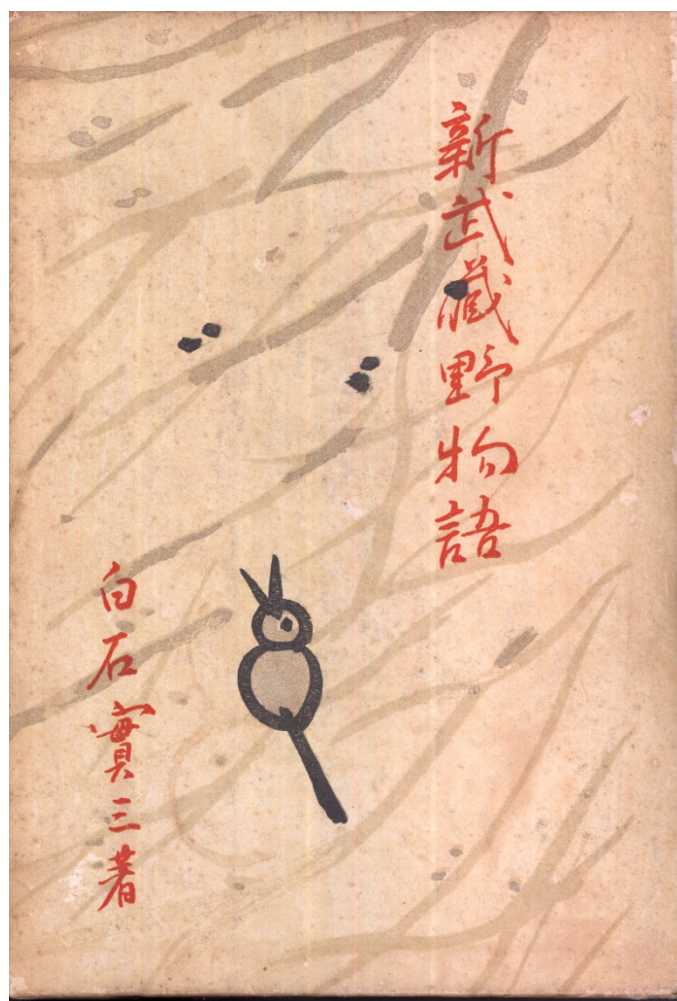 新武蔵野物語
白石實三著